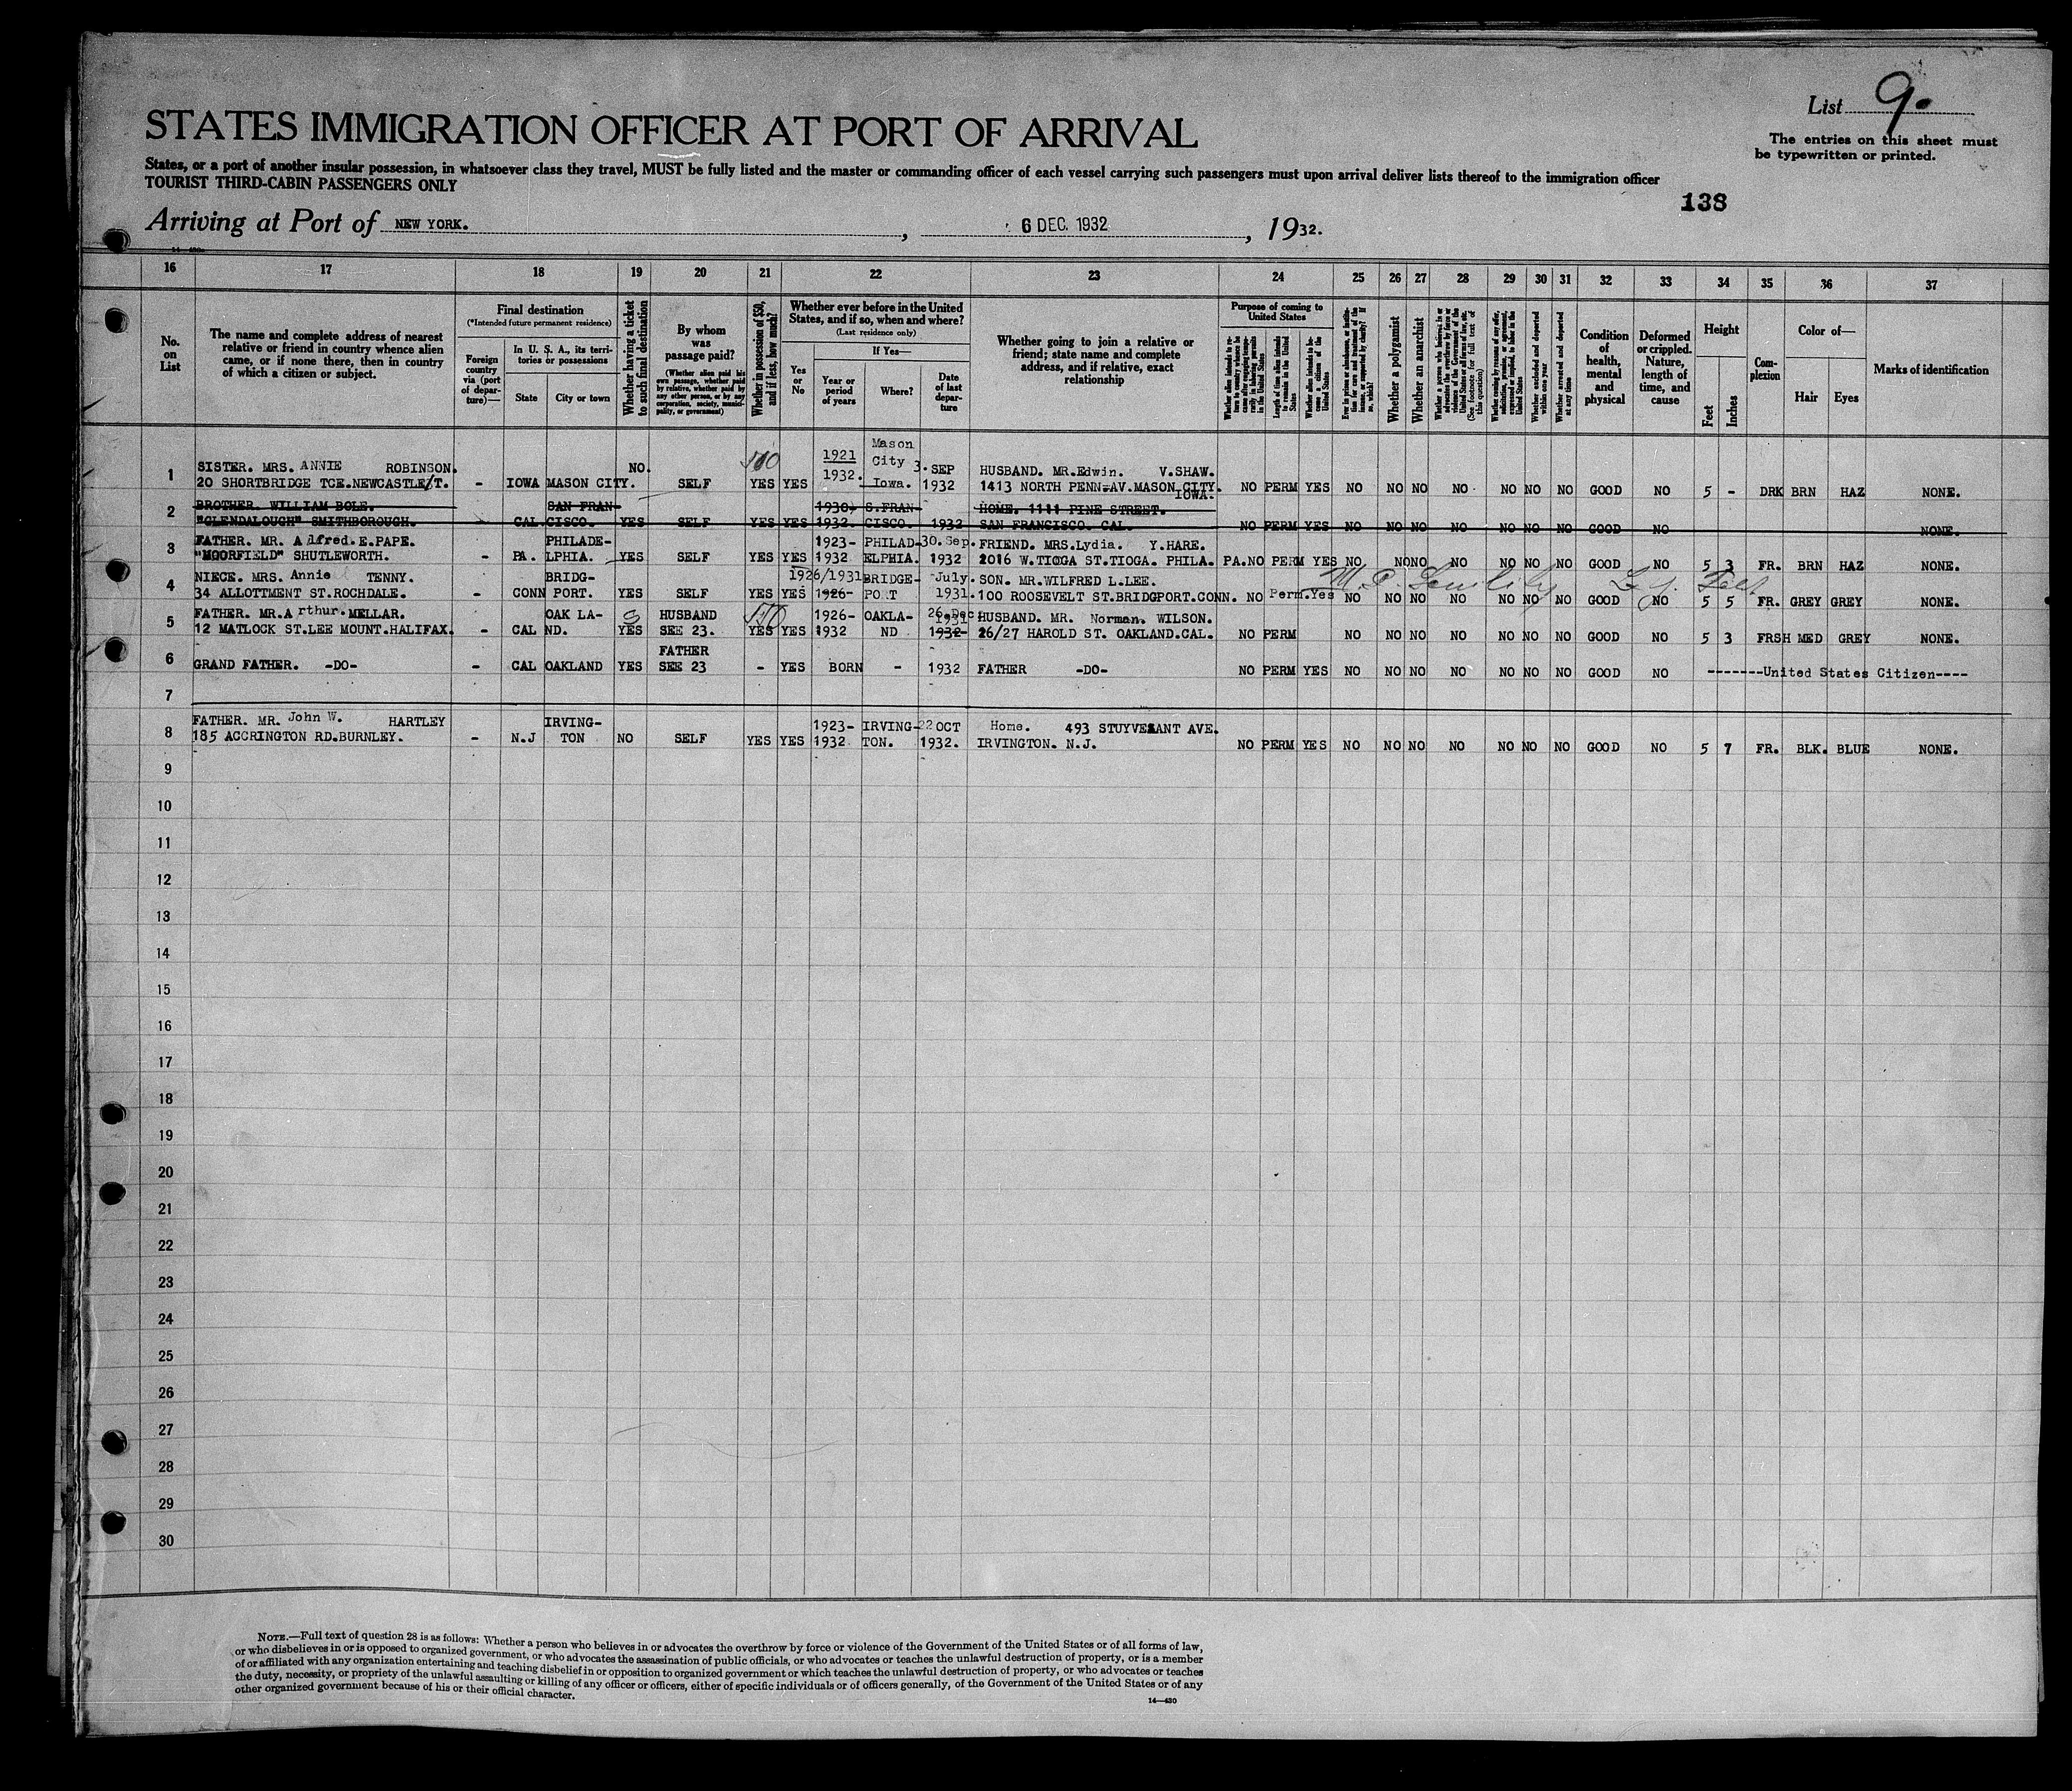 List 9.
STATES IMMIGRATION OFFICER AT PORT OF ARRIVAL
The entries on this sheet must
be typewritten or printed.
States, or a port of another insular possession, in whatsoever class they travel, MUST be fully listed and the master or commanding officer of each vessel carrying such passengers must upon arrival deliver lists thereof to the immigration officer
TOURIST THIRD-CABIN PASSENGERS ONLY
138
Arriving at Port of NEW YORK. , 6 DEC. 1932 , 1932.
16 17 18 19 20 21 22 23 24 25 26 27 28 29 30 31 32 33 34 35 36 37
No. on List
The name and complete address of nearest relative or friend in country whence alien came, or if none there, then in country of which a citizen or subject.
Final destination
(*Intended future permanent residence)
Foreign country via (port of departure)—
In U. S. A., its territories or possessions
State
City or town
Whether having a ticket to such final destination
By whom was passage paid?
(Whether alien paid his own passage, whether paid by relative, whether paid by any other person, or by any corporation, society, municipality, or government)
Whether in possession of $50, and if less, how much?
Whether ever before in the United States, and if so, when and where?
(Last residence only)
Yes or No
If Yes—
Year or period of years
Where?
Date of last departure
Whether going to join a relative or friend; state name and complete address, and if relative, exact relationship
Purpose of coming to United States
Length of time alien intends to remain in the United States
Whether alien intends to become a citizen of the United States
Whether a polygamist
Whether an anarchist
(See footnote for full text of this question)
Whether excluded and deported within one year
Whether arrested and deported at any time
Condition of health, mental and physical
Deformed or crippled. Nature, length of time, and cause
Height
Feet
Inches
Complexion
Color of—
Hair
Eyes
Marks of identification
1 SISTER. MRS. ANNIE ROBINSON. NO. 1921 Mason City 3. SEP HUSBAND. MR. Edwin. V. SHAW.
20 SHORTBRIDGE TCE. NEWCASTLE/T. - IOWA MASON CITY. SELF YES YES 1932. Iowa. 1932 1413 NORTH PENN-AV. MASON CITY. IOWA. NO PERM YES NO NO NO NO NO NO NO GOOD NO 5 - DRK BRN HAZ NONE.
2 BROTHER. WILLIAM BOLE. SAN FRAN- 1930- S.FRAN- HOME. 1111 PINE STREET.
"GLENDALOUGH" SMITHBOROUGH. CAL. CISCO. YES SELF YES YES 1932 CISCO. 1932 SAN FRANCISCO. CAL. NO PERM YES NO NO NO NO NO NO NO GOOD NO NONE.
3 FATHER. MR. Alfred. E. PAPE. PHILADE- 1923- PHILAD- 30. Sep. FRIEND. MRS. Lydia. Y. HARE.
"MOORFIELD" SHUTLEWORTH. - PA. LPHIA. YES SELF YES YES 1932 ELPHIA. 1932 2016 W. TIOGA ST. TIOGA. PHILA. PA. NO PERM YES NO NO NO NO NO NO NO GOOD NO 5 3 FR. BRN HAZ NONE.
4 NIECE. MRS. Annie TENNY. BRIDG- 1926/1931 BRIDGE- July. SON. MR. WILFRED L. LEE.
34 ALLOTTMENT ST. ROCHDALE. - CONN PORT. YES SELF YES YES 1926- PORT 1931. 100 ROOSEVELT ST. BRIDGPORT. CONN. NO Perm. Yes NO NO NO NO NO NO NO GOOD NO 5 5 FR. GREY GREY NONE.
5 FATHER. MR. Arthur. MELLAR. OAK LA- HUSBAND 1926- OAKLA- 26. Dec 1931 HUSBAND. MR. Norman. WILSON.
12 MATLOCK ST. LEE MOUNT. HALIFAX. - CAL ND. YES SEE 23. YES YES 1932 ND 1932- 26/27 HAROLD ST. OAKLAND. CAL. NO PERM NO NO NO NO NO NO NO GOOD NO 5 3 FRSH MED GREY NONE.
6 FATHER
GRAND FATHER. -DO- - CAL OAKLAND YES SEE 23 - YES BORN - 1932 FATHER -DO- NO PERM YES NO NO NO NO NO NO NO GOOD NO -------United States Citizen----
7
8 FATHER. MR. John W. HARTLEY IRVING- 1923- IRVING- 22 OCT Home. 493 STUYVESANT AVE.
185 ACCRINGTON RD. BURNLEY. - N.J TON NO SELF YES YES 1932 TON. 1932. IRVINGTON. N.J. NO PERM YES NO NO NO NO NO NO NO GOOD NO 5 7 FR. BLK. BLUE NONE.
9
10
11
12
13
14
15
16
17
18
19
20
21
22
23
24
25
26
27
28
29
30
NOTE.—Full text of question 28 is as follows: Whether a person who believes in or advocates the overthrow by force or violence of the Government of the United States or of all forms of law,
or who disbelieves in or is opposed to organized government, or who advocates the assassination of public officials, or who advocates or teaches the unlawful destruction of property, or is a member
of or affiliated with any organization entertaining and teaching disbelief in or opposition to organized government or which teaches the unlawful destruction of property, or who advocates or teaches
the duty, necessity, or propriety of the unlawful assaulting or killing of any officer or officers, either of specific individuals or of officers generally, of the Government of the United States or of any
other organized government because of his or their official character.
14—430